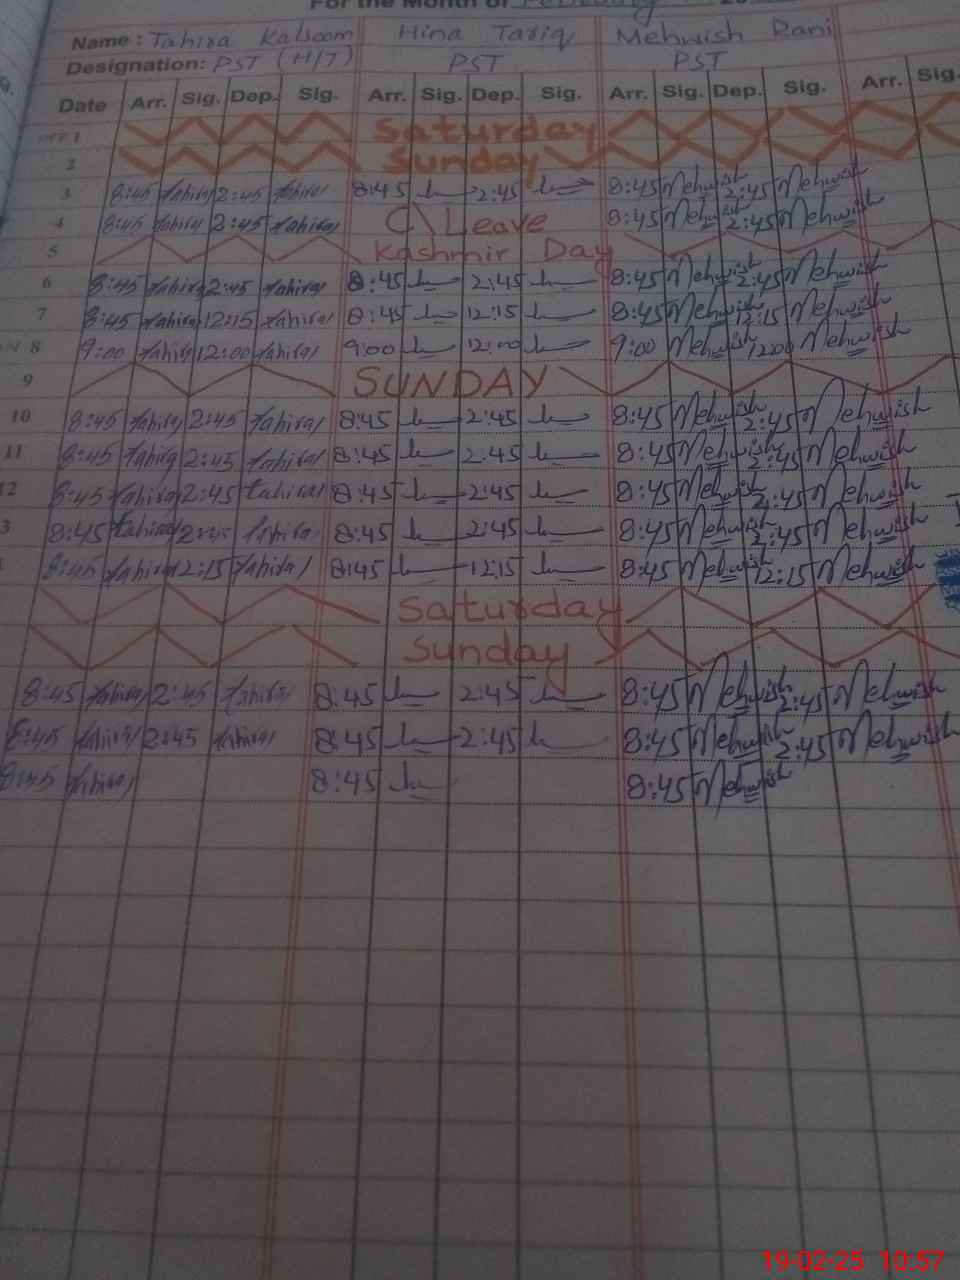 For the Month of February 20
Name : Tahira Kalsoom Hina Tariq Mehwish Rani
Designation: PST (H/T) PST PST
Date Arr. Sig. Dep. Sig. Arr. Sig. Dep. Sig. Arr. Sig. Dep. Sig. Arr. Sig.
1 Saturday
2 Sunday
3 8:45 Tahira 2:45 Tahira 8:45 2:45 8:45 Mehwish 2:45 Mehwish
4 8:45 Tahira 2:45 Tahira C\Leave 8:45 Mehwish 2:45 Mehwish
5 Kashmir Day
6 8:45 Tahira 2:45 Tahira 8:45 2:45 8:45 Mehwish 2:45 Mehwish
7 8:45 Tahira 12:15 Tahira 8:45 12:15 8:45 Mehwish 12:15 Mehwish
8 9:00 Tahira 12:00 Tahira 9:00 12:00 9:00 Mehwish 12:00 Mehwish
9 SUNDAY
10 8:45 Tahira 2:45 Tahira 8:45 2:45 8:45 Mehwish 2:45 Mehwish
11 8:45 Tahira 2:45 Tahira 8:45 2:45 8:45 Mehwish 2:45 Mehwish
12 8:45 Tahira 2:45 Tahira 8:45 2:45 8:45 Mehwish 2:45 Mehwish
3 8:45 Tahira 2:45 Tahira 8:45 2:45 8:45 Mehwish 2:45 Mehwish
8:45 Tahira 12:15 Tahira 8:45 12:15 8:45 Mehwish 12:15 Mehwish
Saturday
Sunday
8:45 Tahira 2:45 Tahira 8:45 2:45 8:45 Mehwish 2:45 Mehwish
8:45 Tahira 2:45 Tahira 8:45 2:45 8:45 Mehwish 2:45 Mehwish
8:45 Tahira 8:45 8:45 Mehwish
19-02-25 10:57